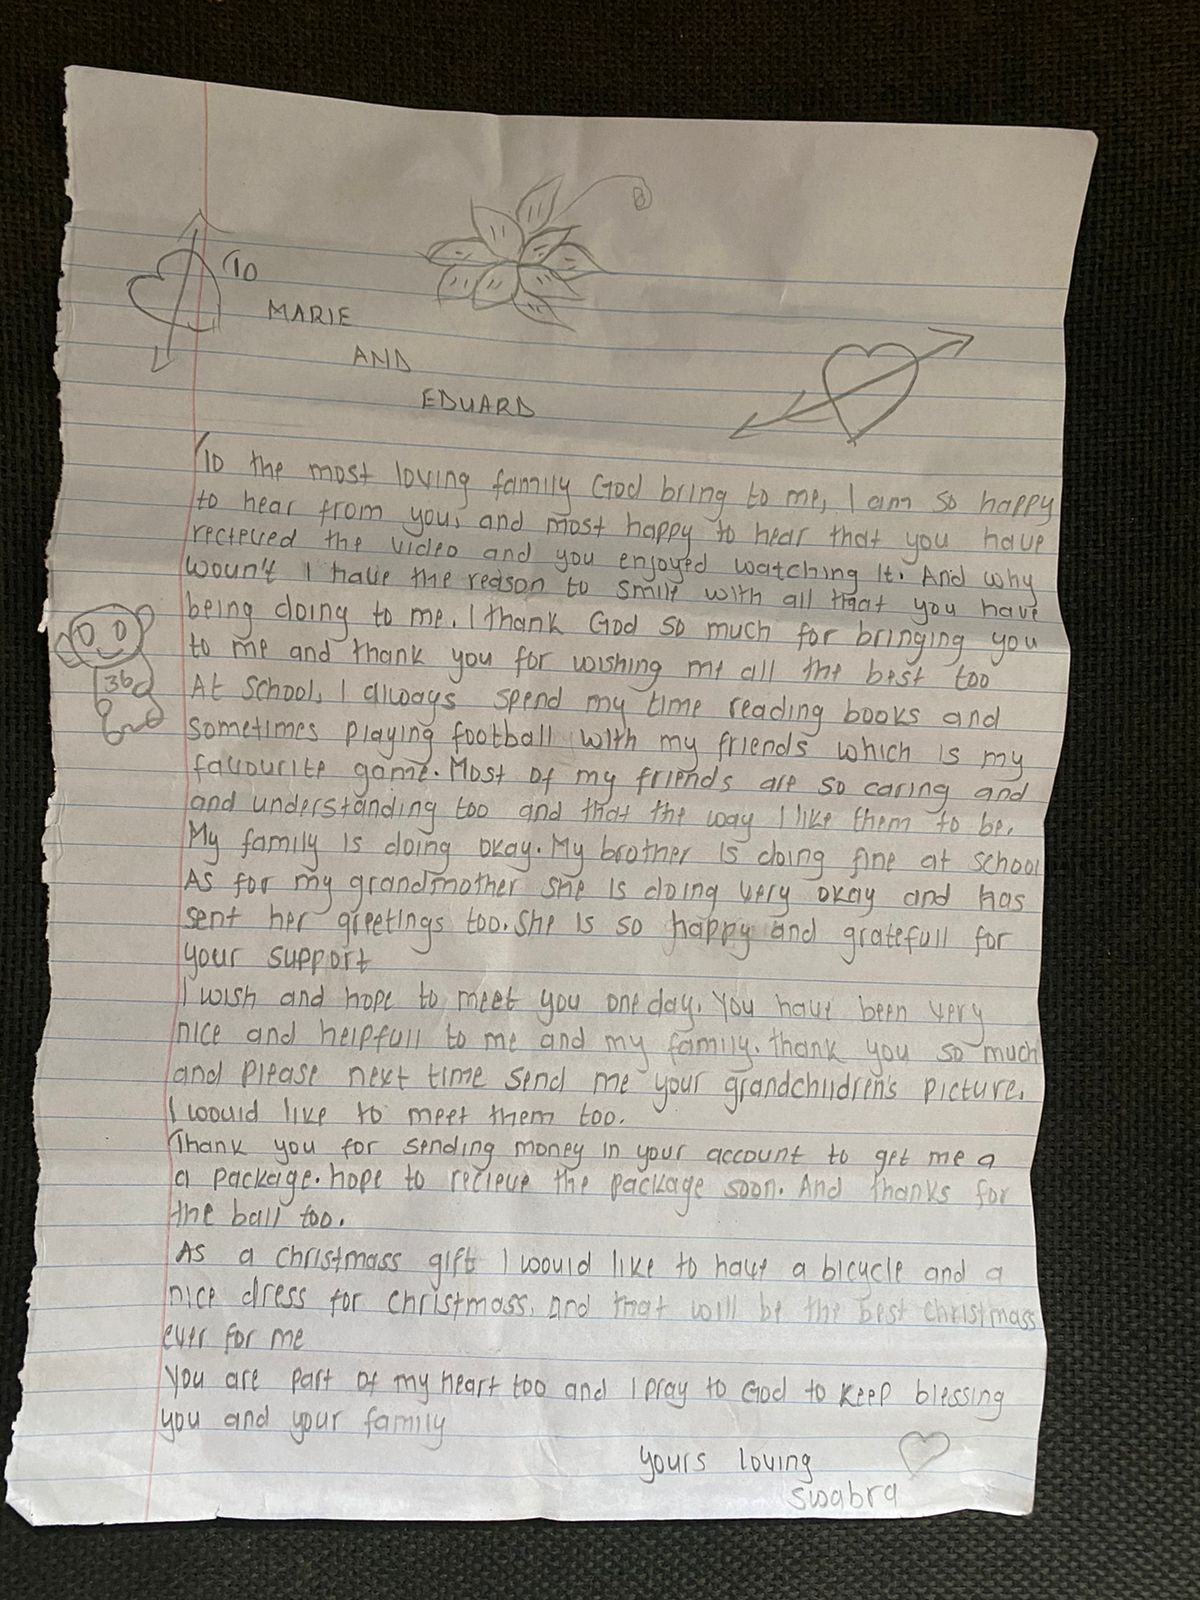 TO
MARIE
AND
EDUARD
To the most loving family God bring to me, I am so happy
to hear from you, and most happy to hear that you have
recieved the video and you enjoyed watching it. And why
woun't I have the reason to smile with all that you have
being doing to me. I thank God so much for bringing you
to me and thank you for wishing me all the best too
At school, I always spend my time reading books and
sometimes playing football with my friends which is my
favourite game. Most of my friends are so caring and
and understanding too and that the way I like them to be.
My family is doing okay. My brother is doing fine at school
As for my grandmother she is doing very okay and has
sent her greetings too. She is so happy and gratefull for
your support
I wish and hope to meet you one day. You have been very
nice and helpfull to me and my family. thank you so much
and please next time send me your grandchildren's picture.
I would like to meet them too.
Thank you for sending money in your account to get me a
a package. hope to recieve the package soon. And thanks for
the ball too.
As a christmass gift I would like to have a bicycle and a
nice dress for christmass. and that will be the best christmass
ever for me
You are part of my heart too and I pray to God to keep blessing
you and your family
yours loving
swabra
36